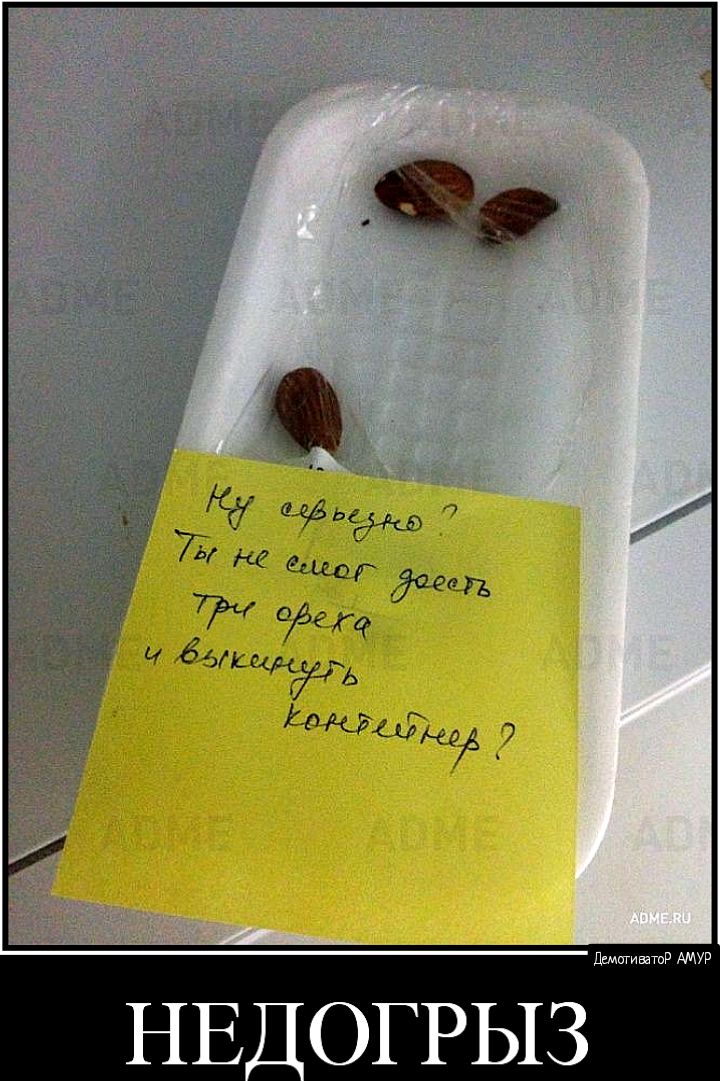 Ну серьезно?
Ты не смог доесть
три ореха
и выкинуть
контейнер?
ADME.RU
ДемотиватоР АМУР
НЕДОГРЫЗ